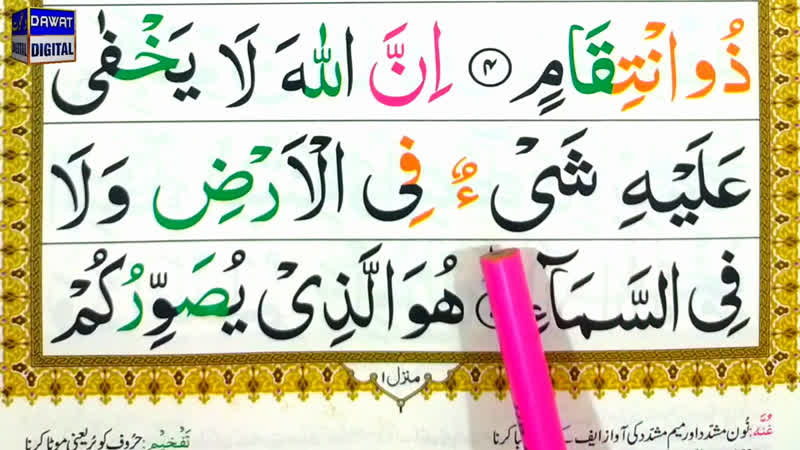 DAWAT
DIGITAL DIGITAL
ذُو انْتِقَامٍ ۴ اِنَّ اللّٰهَ لَا يَخْفٰى
عَلَيْهِ شَىْءٌ فِى الْاَرْضِ وَلَا
فِى السَّمَآءِ هُوَ الَّذِىْ يُصَوِّرُكُمْ
منزل ۱
غُنّہ: نُون مشدّد اور میم مشدّد کی آواز ایف کے
تَفْخِیْم: حُرُوف کو پُر یعنی موٹا کرنا